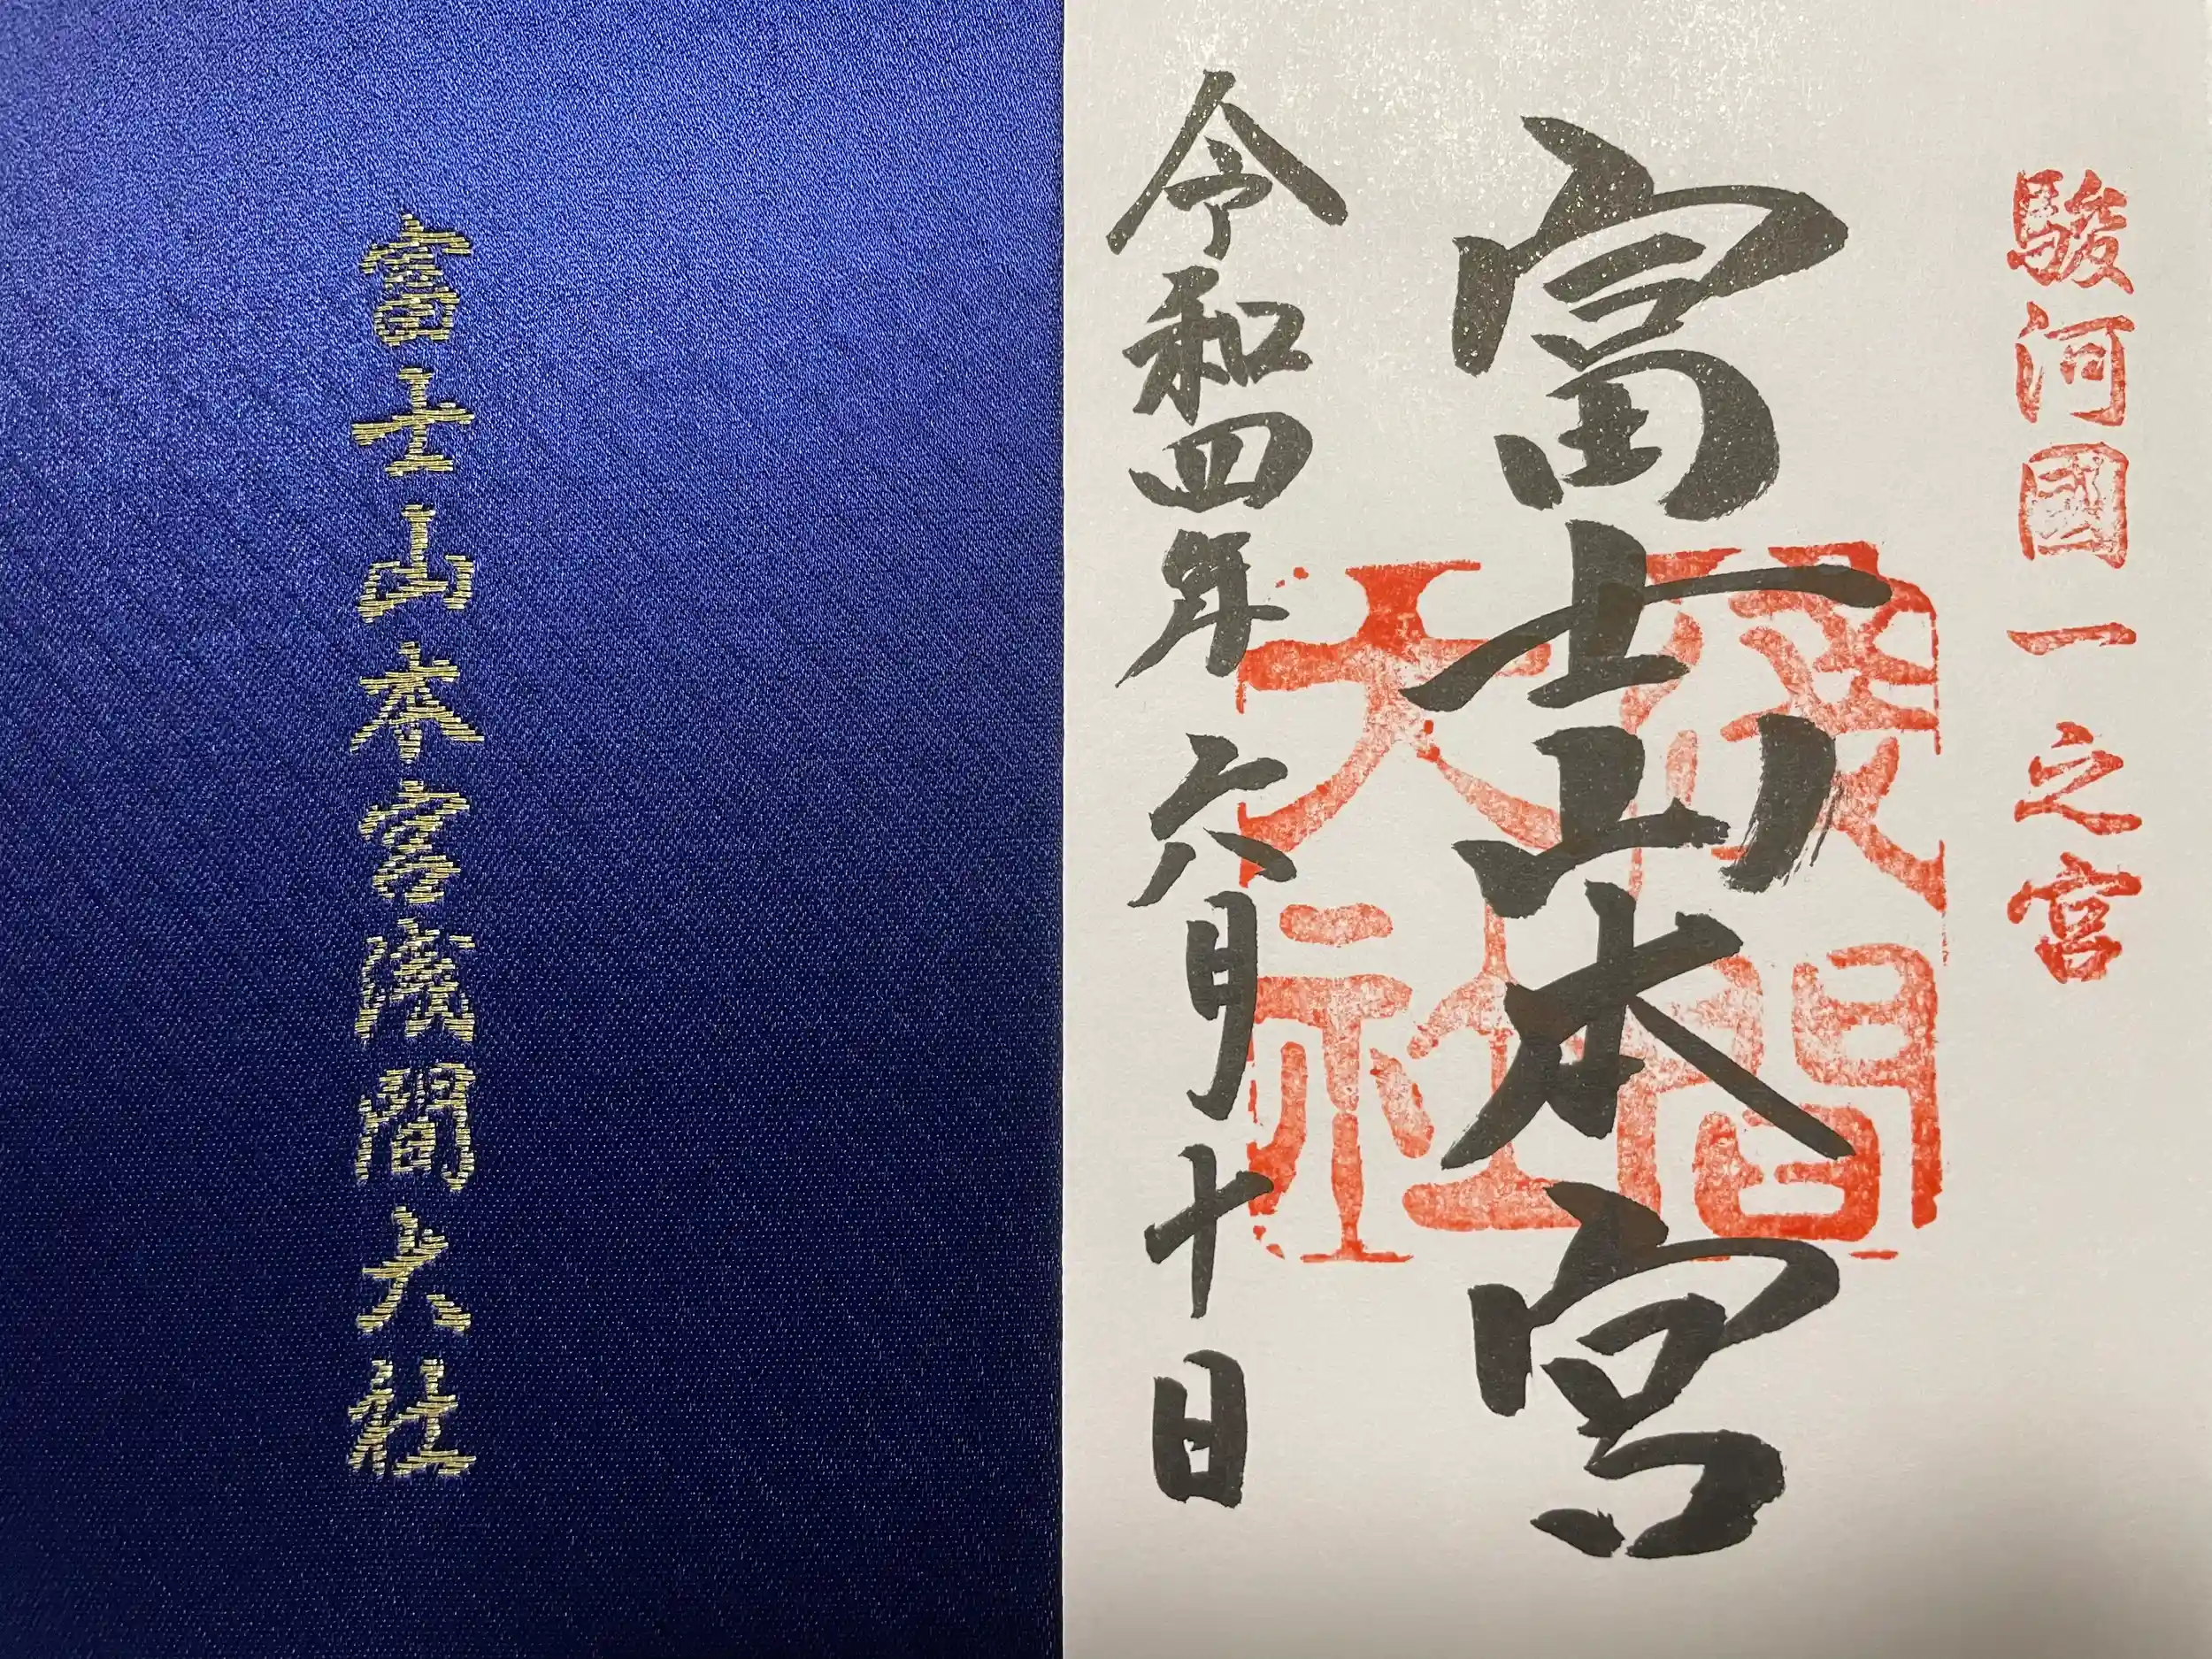 富士山本宮浅間大社
駿河國一之宮
富士山本宮
浅間
大社
令和四年六月十日